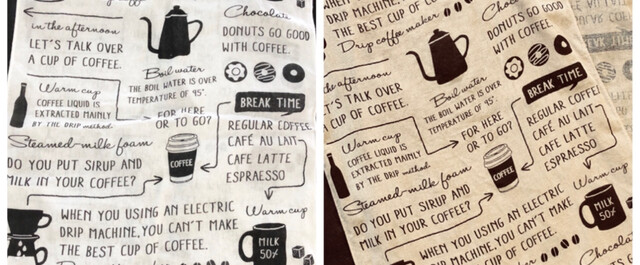 Chocolate
in the afternoon
DONUTS GO GOOD
WITH COFFEE.
LET'S TALK OVER
A CUP OF COFFEE.
Boil water
THE BOIL WATER IS OVER
TEMPERATURE OF 95°.
Warm cup
COFFEE LIQUID IS
EXTRACTED MAINLY
BY THE DRIP method.
BREAK TIME
FOR HERE
OR TO GO?
REGULAR COFFEE
CAFÉ AU LAIT
CAFE LATTE
ESPRAESSO
Steamed-milk foam
COFFEE
DO YOU PUT SIRUP AND
MILK IN YOUR COFFEE?
Warm cup
WHEN YOU USING AN ELECTRIC
DRIP MACHINE, YOU CAN'T MAKE
THE BEST CUP OF COFFEE.
MILK
50%
WHEN YOU USING AN
DRIP MACHINE, YOU CAN'T
THE BEST CUP OF COF
Drip coffee maker
DONUTS GO GOOD
WITH COFFEE.
afternoon
T'S TALK OVER
CUP OF COFFEE.
Boil water
THE BOIL WATER IS OVER
TEMPERATURE OF 95°.
BREAK TIME
Warm cup
COFFEE LIQUID IS
EXTRACTED MAINLY
BY THE DRIP method.
FOR HERE
OR TO GO?
REGULAR COFFE
CAFÉ AU LAIT
CAFE LATTE
ESPRAESSO
Steamed-milk foam
COFFEE
DO YOU PUT SIRUP AND
MILK IN YOUR COFFEE?
Warm cup
WHEN YOU USING AN ELECTRIC
DRIP MACHINE, YOU CAN'T MAKE
THE BEST CUP OF COFFEE.
MILK
50%
Chocolate